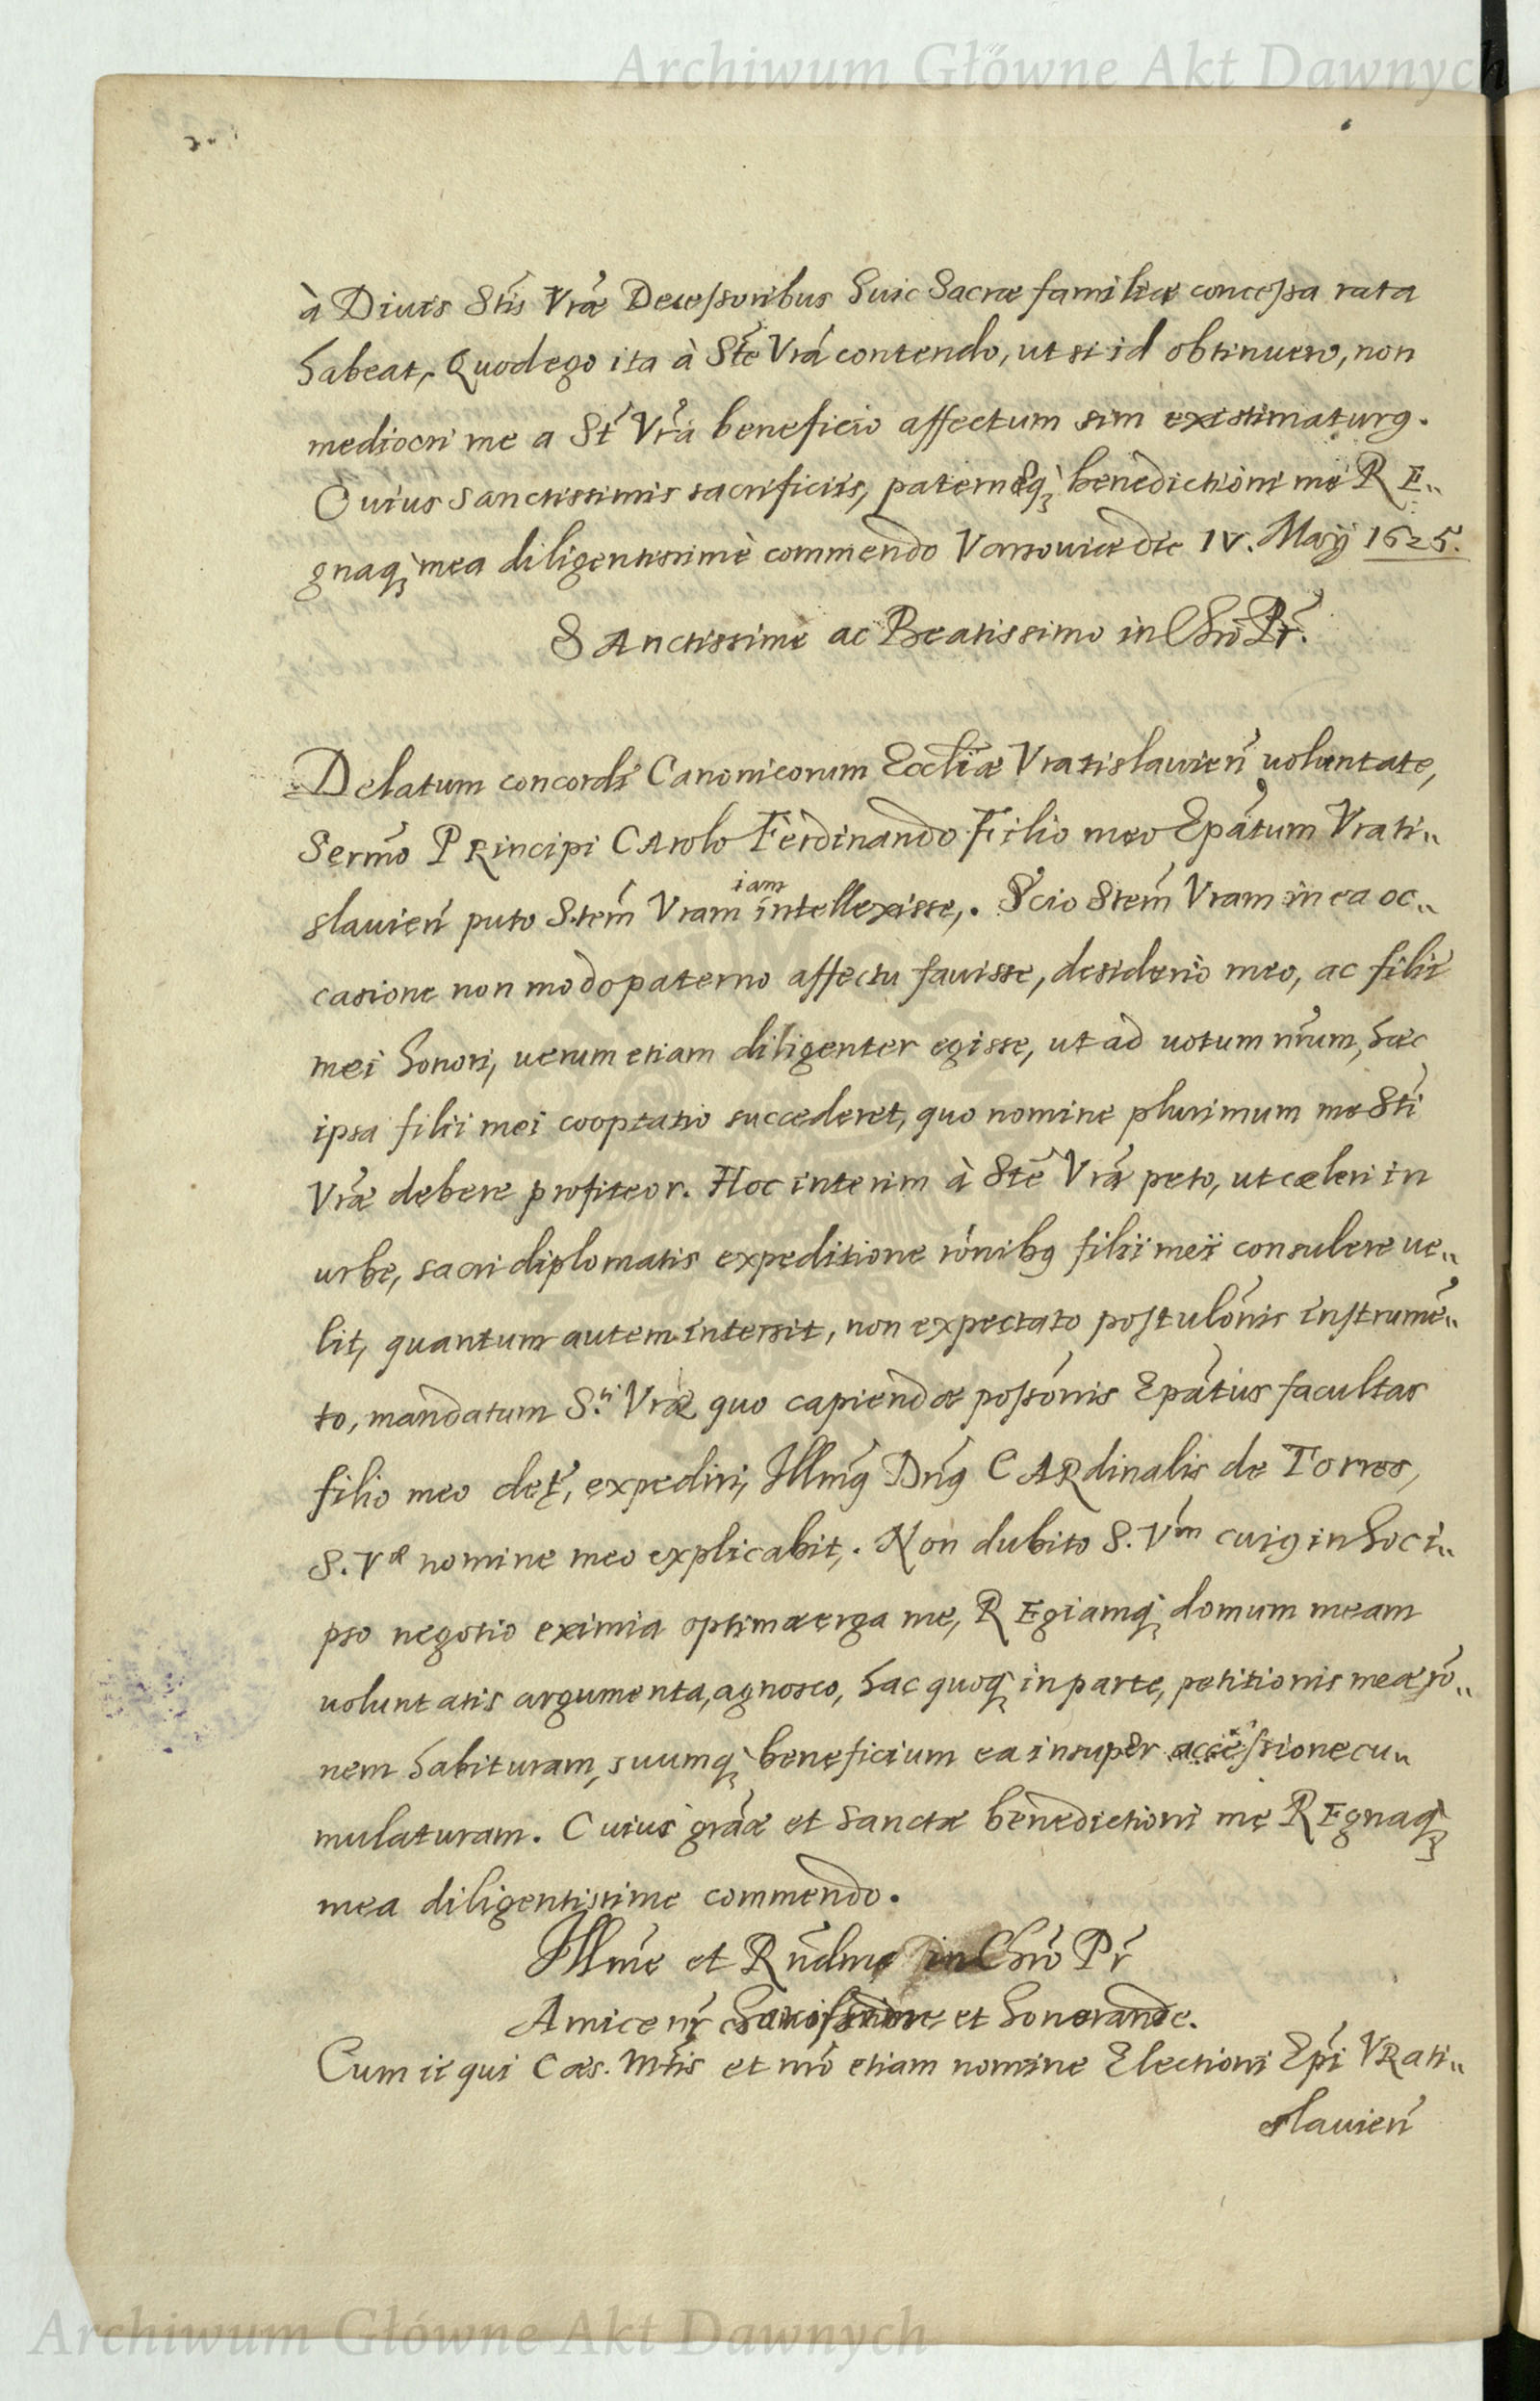 Archiwum Główne Akt Dawnych
à Diuis Stis Vrae Decessoribus huic Sacrae familiae concessa rata
habeat, Quod ego ita à Ste Vra contendo, ut si id obtinuero, non
mediocri me a St Vra beneficio affectum sim existimaturq.
Cuius Sanctissimis sacrificiis, paternaeq benedictioni me RE„
gnaq mea diligentissimè commendo Varsouiae die IV. May 1625.
SAnctissime ac Beatissime in Chro Pr.
Delatum concordi Canonicorum Eccliae Vratislauien uoluntate,
Sermo PRincipi CArolo Ferdinando Filio meo Epatum Vrati„
slauien puto Stem Vram iam intellexisse,. Scio Stem Vram in ea oc„
casione non modo paterno affectu fauisse, desiderio meo, ac filii
mei honori, uerum etiam diligenter egisse, ut ad uotum nrum, haec
ipsa filii mei cooptatio succederet, quo nomine plurimum me Sti
Vrae debere profiteor. Hoc interim à Ste Vra peto, ut celeri in
urbe, sacri diplomatis expeditione ronibq filii mei consulere ue„
lit, quantum autem intersit, non expectato postulonis instrume„
to, mandatum S.ti Vrae quo capiendae possonis Epatus facultas
filio meo det, expediri, Illmq Dnq CARdinalis de Torres,
S. Vae nomine meo explicabit,. Non dubito S. Vm cuiq in hoc i„
pso negotio eximia optimae erga me, REgiamq domum meam
uoluntatis argumenta, agnosco, hac quoq in parte, petitionis meae ro„
nem habituram, suumq beneficium ea insuper accessione cu„
mulaturam. Cuius grae et Sanctae benedictioni me REgnaq
mea diligentissime commendo.
Illme et Rndme in Chro Pr
Amice nr et honorande.
Cum ii qui Caes. Mtis et nro etiam nomine Electioni Epi VRati„
slauien
Archiwum Główne Akt Dawnych